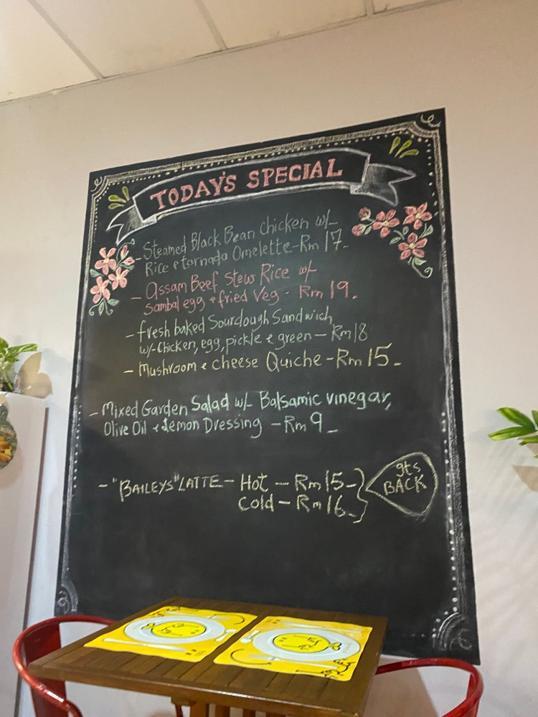 TODAY'S SPECIAL
- Steamed Black Bean chicken w/-
Rice & tornado Omelette - Rm 17.-
- Assam Beef Stew Rice w/
Sambal egg + fried Veg - Rm 19.
- fresh baked Sourdough Sandwich,
w/- Chicken, egg, pickle & green - Rm 18
- Mushroom & cheese Quiche - Rm 15.-
- Mixed Garden Salad w/- Balsamic vinegar,
Olive Oil & Lemon Dressing - Rm 9.-
- "BAILEYS" LATTE - Hot - Rm 15.-
Cold - Rm 16.-
Its
BACK